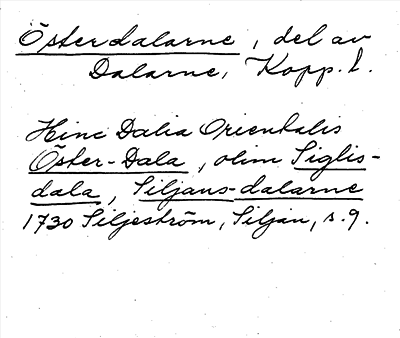 Österdalarne, del av
Dalarne, Kopp. l.
Hinc Dalia Orientalis
Öster-Dala, olim Siglis-
dala, Siljans-dalarne
1730 Siljeström, Siljan, s. 9.